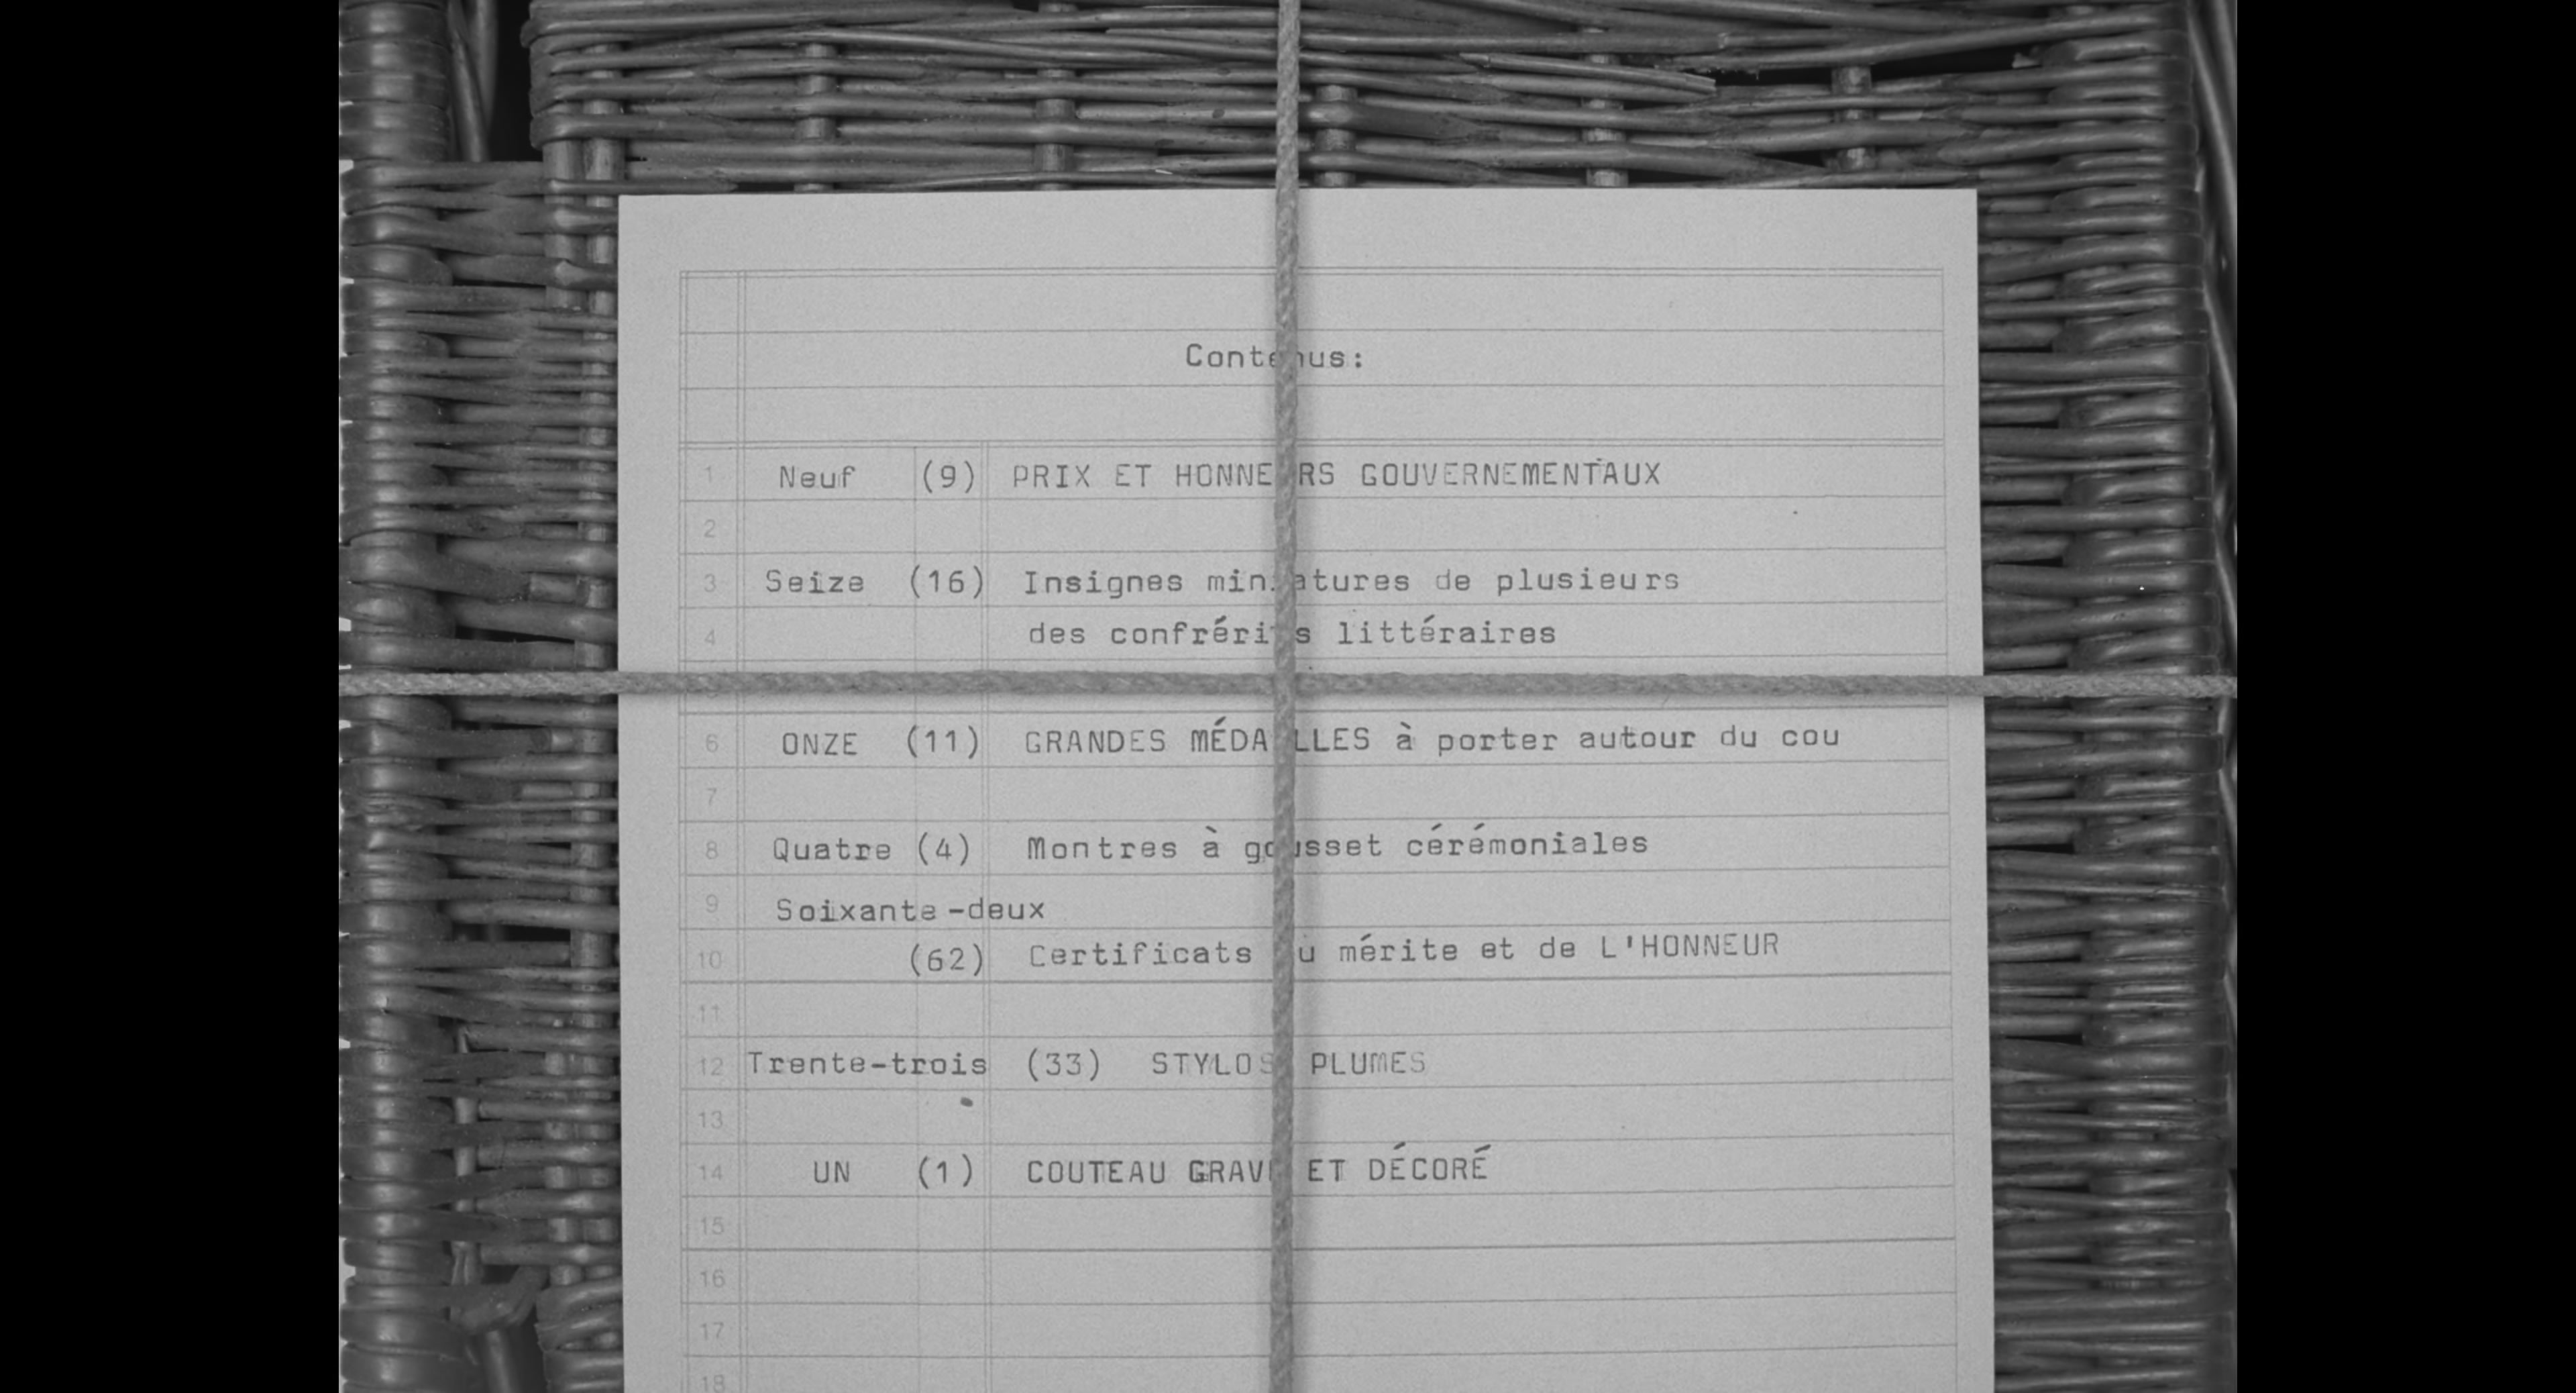 Contenus:
1 Neuf (9) PRIX ET HONNEURS GOUVERNEMENTAUX
2
3 Seize (16) Insignes miniatures de plusieurs
4 des confréries littéraires
6 ONZE (11) GRANDES MÉDAILLES à porter autour du cou
7
8 Quatre (4) Montres à gousset cérémoniales
9 Soixante-deux
10 (62) Certificats du mérite et de L'HONNEUR
11
12 Trente-trois (33) STYLOS PLUMES
13
14 UN (1) COUTEAU GRAVÉ ET DÉCORÉ
15
16
17
18